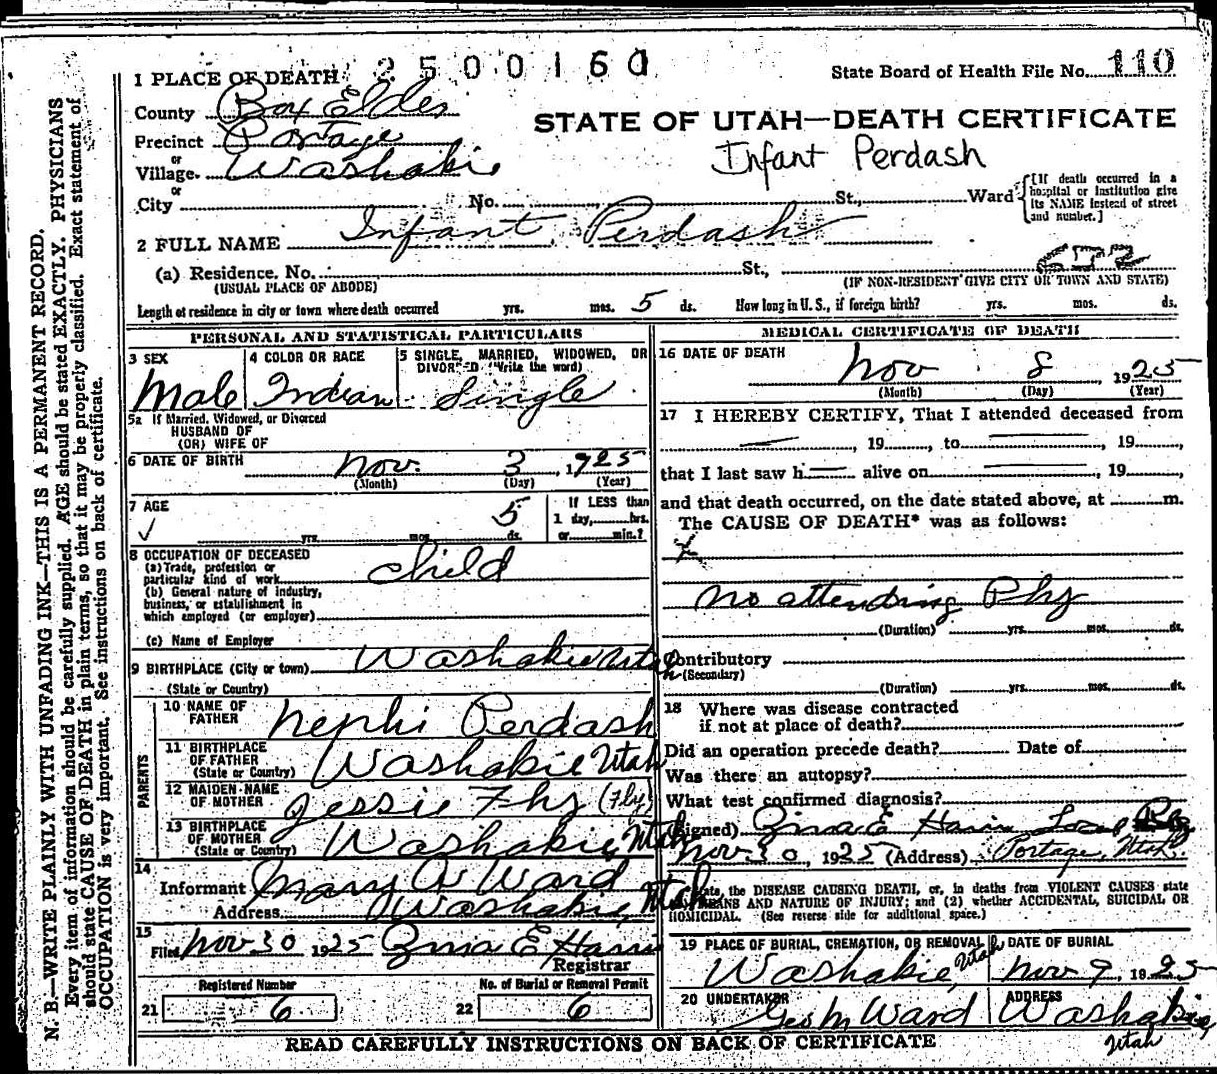 2500160
State Board of Health File No. 110
1 PLACE OF DEATH
County Box Elder
STATE OF UTAH—DEATH CERTIFICATE
Precinct Portage
Infant Perdash
or
Village. Washakie
or
City No. St., Ward
[If death occurred in a
hospital or institution give
its NAME instead of street
and number.]
2 FULL NAME Infant Perdash
(a) Residence. No. St.,
(USUAL PLACE OF ABODE)
(IF NON-RESIDENT GIVE CITY OR TOWN AND STATE)
Length of residence in city or town where death occurred yrs. mos. 5 ds. How long in U. S., if foreign birth? yrs. mos. ds.
PERSONAL AND STATISTICAL PARTICULARS
3 SEX
Male
4 COLOR OR RACE
Indian
5 SINGLE, MARRIED, WIDOWED, OR
DIVORCED (Write the word)
Single
5a If Married, Widowed, or Divorced
HUSBAND OF
(OR) WIFE OF
6 DATE OF BIRTH Nov. 3, 1925
(Month) (Day) (Year)
7 AGE
5
yrs. mos. ds.
If LESS than
1 day, hrs.
or min.?
8 OCCUPATION OF DECEASED
(a) Trade, profession or
particular kind of work Child
(b) General nature of industry,
business, or establishment in
which employed (or employer)
(c) Name of Employer
9 BIRTHPLACE (City or town) Washakie Utah
(State or Country)
PARENTS
10 NAME OF
FATHER Nephi Perdash
11 BIRTHPLACE
OF FATHER
(State or Country) Washakie Utah
12 MAIDEN NAME
OF MOTHER Jessie Fhy (Fly)
13 BIRTHPLACE
OF MOTHER
(State or Country) Washakie, Utah
14
Informant Mary A Ward
Address Washakie, Utah
15
Filed Nov 30 1925 Zina E Harris
Registrar
Registered Number
21 6
No. of Burial or Removal Permit
22 6
MEDICAL CERTIFICATE OF DEATH
16 DATE OF DEATH
Nov 8 1925
(Month) (Day) (Year)
17 I HEREBY CERTIFY, That I attended deceased from
, 19, to , 19,
that I last saw h alive on , 19
and that death occurred, on the date stated above, at m.
The CAUSE OF DEATH* was as follows:
No attending Phy
(Duration) yrs. mos. ds.
Contributory
(Secondary)
(Duration) yrs. mos. ds.
18 Where was disease contracted
if not at place of death?
Did an operation precede death? Date of
Was there an autopsy?
What test confirmed diagnosis?
(Signed) Zina E Harris Local Reg
Nov 30, 1925 (Address) Portage, Utah
State, the DISEASE CAUSING DEATH, or, in deaths from VIOLENT CAUSES state
MEANS AND NATURE OF INJURY; and (2) whether ACCIDENTAL, SUICIDAL OR
HOMICIDAL. (See reverse side for additional space.)
19 PLACE OF BURIAL, CREMATION, OR REMOVAL
Washakie, Utah
DATE OF BURIAL
Nov 9, 1925
20 UNDERTAKER
Geo M Ward
ADDRESS
Washakie,
Utah
READ CAREFULLY INSTRUCTIONS ON BACK OF CERTIFICATE
N. B.—WRITE PLAINLY WITH UNFADING INK—THIS IS A PERMANENT RECORD.
Every item of information should be carefully supplied. AGE should be stated EXACTLY. PHYSICIANS
should state CAUSE OF DEATH in plain terms, so that it may be properly classified. Exact statement of
OCCUPATION is very important. See instructions on back of certificate.